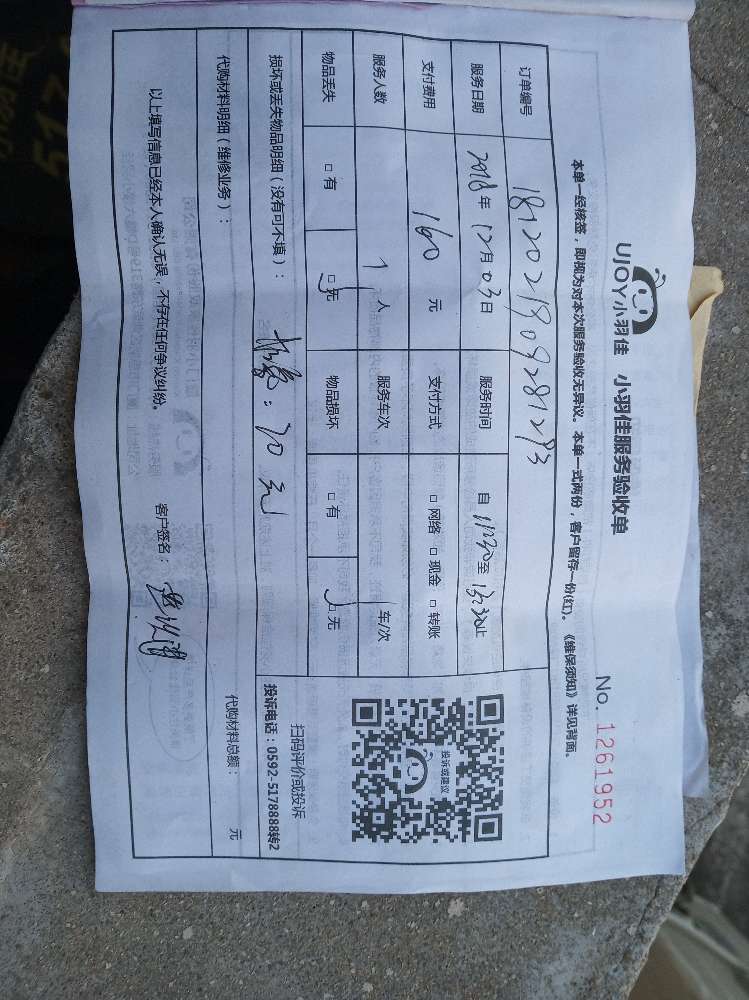 UJOY小羽佳 小羽佳服务验收单
No. 1261952
本单一经核签，即视为对本次服务验收无异议。本单一式两份，客户留存一份(红)。《维保须知》详见背面。
订单编号
服务日期 2018年12月03日 服务时间 自 11:30至 13:30止
支付费用 160 元 支付方式 □ 网络 □ 现金 □ 转账
服务人数 1 人 服务车次 车/次
物品丢失 □ 有 □ 无 物品损坏 □ 有 □ 无
投诉或建议
扫码评价或投诉
投诉电话：0592-5178888转2
损坏或丢失物品明细（没有可不填）：
：20元
代购材料明细（维修业务）： 代购材料总额： 元
以上填写信息已经本人确认无误，不存在任何争议纠纷。 客户签名：